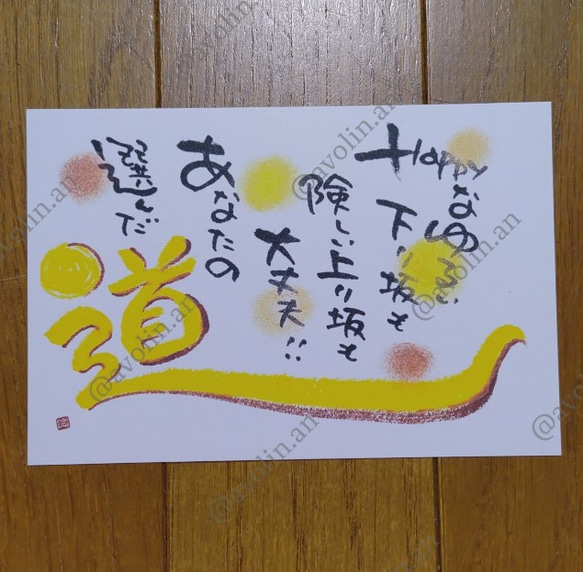 Happyなゆるい
下り坂も
険しい上り坂も
大丈夫!!
あなたの
選んだ
道
@avolin.an
@avolin.an
@avolin.an
@avolin.an
@avolin.an
@avolin.an
@avolin.an